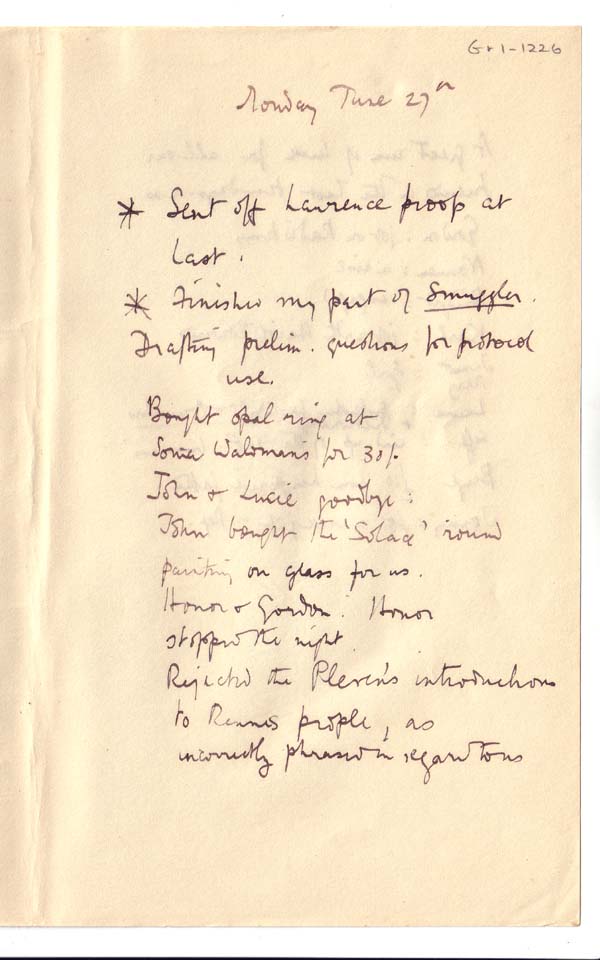 GR1-1226
Monday June 27th
* Sent off Lawrence proofs at
last.
* Finished my part of Smuggler.
Drafting prelim. questions for protocol
use.
Bought opal ring at
Sonia Waldman's for 30/-
John & Lucie goodbye:
John bought the 'Solace' round
painting on glass for us.
Honor & Gordon. Honor
stopped the night.
Rejected the Pleven's introductions
to Rennes people, as
incorrectly phrased in regard to us